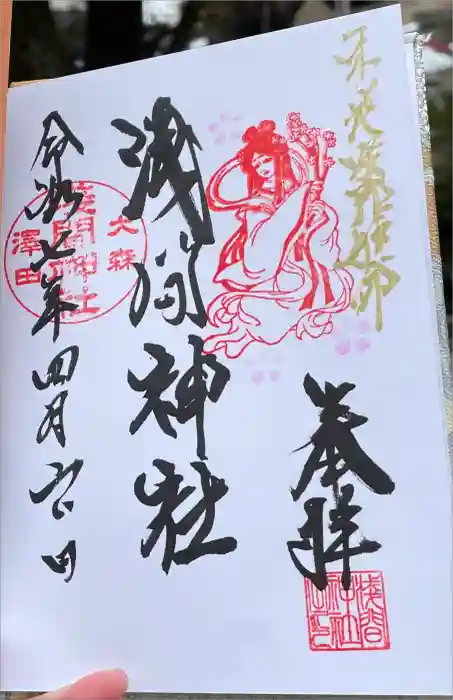 木花咲耶姫命
奉拝
浅間神社
令和七年四月六日
大森
浅間神社
澤田
浅間
神社
之印